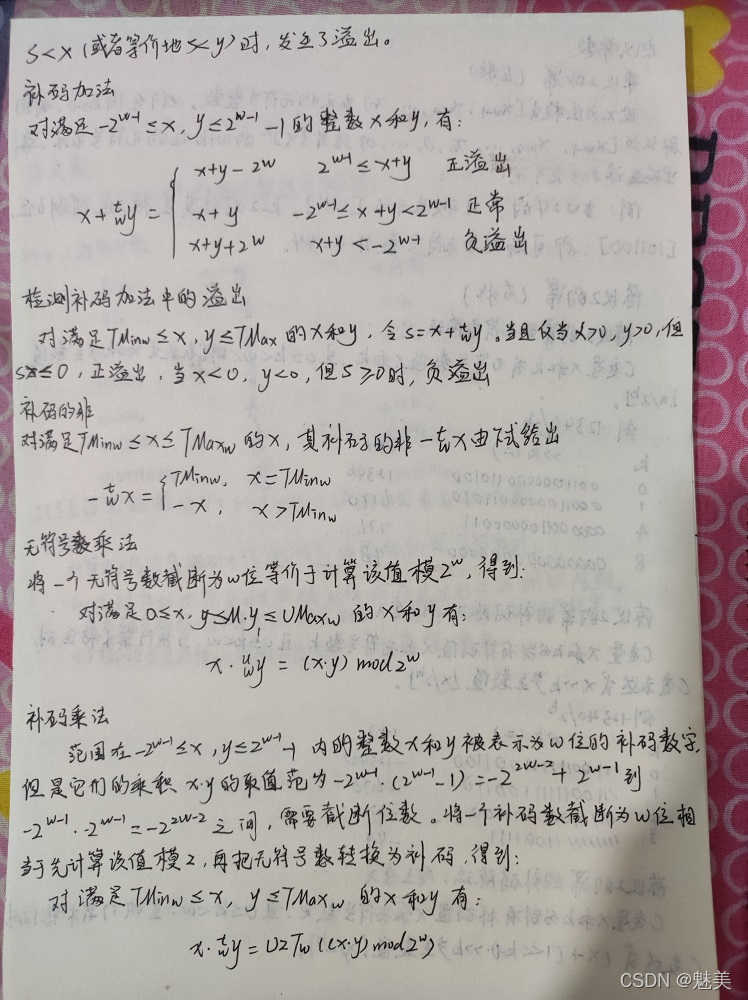 S<x (或者等价地 s<y) 时，发生了溢出。
补码加法
对满足 -2^{w-1} ≤ x, y ≤ 2^{w-1} -1 的整数 x 和 y, 有:
x +^t_w y = { x+y-2^w    2^{w-1} ≤ x+y    正溢出
x+y    -2^{w-1} ≤ x+y < 2^{w-1}    正常
x+y+2^w    x+y < -2^{w-1}    负溢出
检测补码加法中的溢出
对满足 TMinw ≤ x, y ≤ TMax 的 x 和 y, 令 s = x +^t_w y 。当且仅当 x>0, y>0, 但
s ≤ 0, 正溢出, 当 x<0, y<0, 但 s ≥ 0 时, 负溢出
补码的非
对满足 TMinw ≤ x ≤ TMaxw 的 x, 其补码的非 -^t_w x 由下式给出
-^t_w x = { TMinw, x = TMinw
-x, x > TMinw
无符号数乘法
将一个无符号数截断为 w 位等价于计算该值模 2^w, 得到:
对满足 0 ≤ x, y ≤ UMaxw 的 x 和 y 有:
x ·^u_w y = (x·y) mod 2^w
补码乘法
范围在 -2^{w-1} ≤ x, y ≤ 2^{w-1} -1 内的整数 x 和 y 被表示为 w 位的补码数字,
但是它们的乘积 x·y 的取值范为 -2^{w-1} · (2^{w-1} -1) = -2^{2w-2} + 2^{w-1} 到
-2^{w-1} · 2^{w-1} = -2^{2w-2} 之间, 需要截断位数。将一个补码数截断为 w 位相
当于先计算该值模 2, 再把无符号数转换为补码, 得到:
对满足 TMinw ≤ x, y ≤ TMaxw 的 x 和 y 有:
x ·^t_w y = U2Tw ((x·y) mod 2^w)
CSDN @魅美